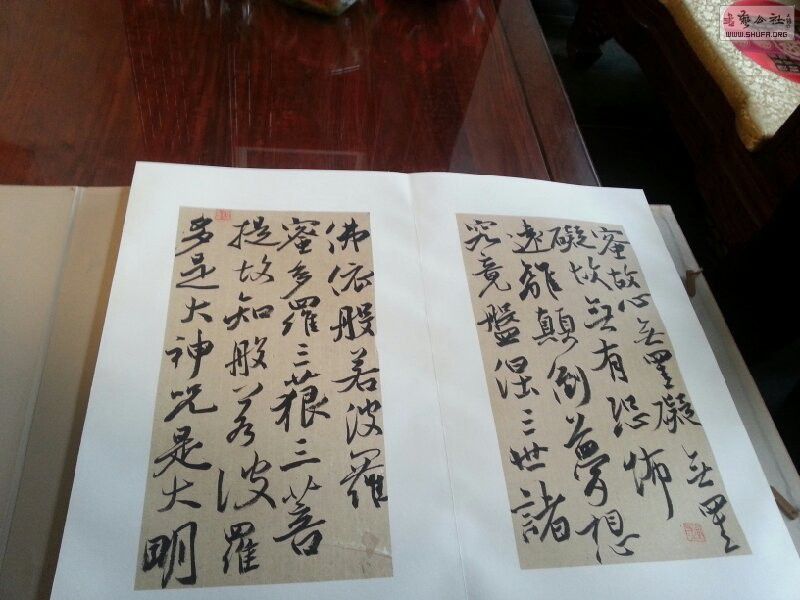 蜜故心無罣礙無罣
礙故無有恐怖
遠離顛倒夢想
究竟盤涅三世諸
佛依般若波羅
蜜多羅三藐三菩
提故知般若波羅
多是大神咒是大明
書藝公社
WWW.SHUFA.ORG